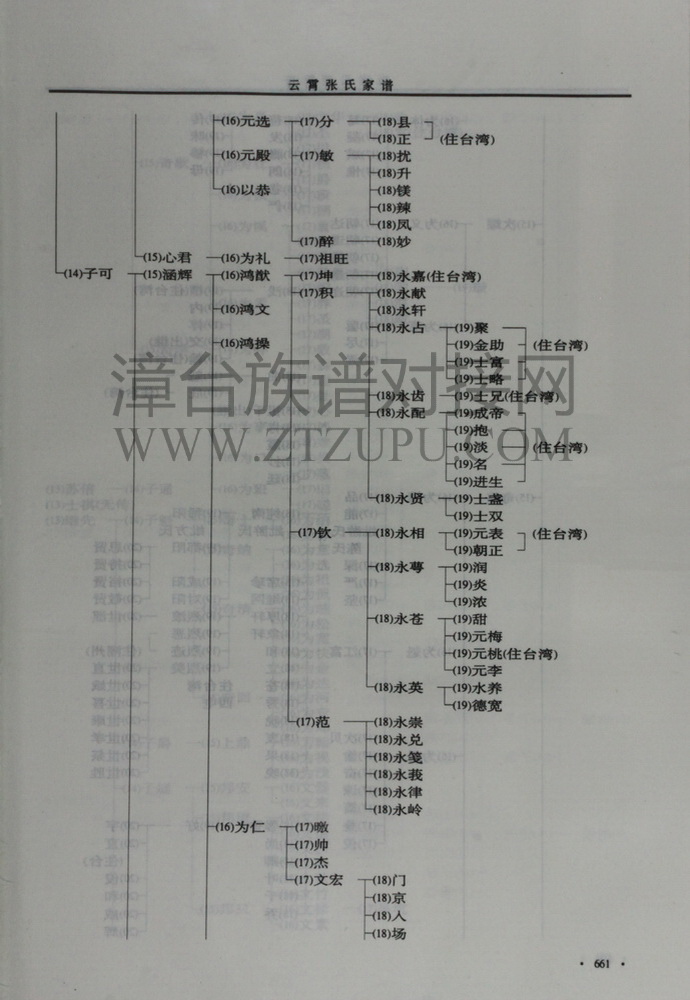 云霄张氏家谱
(16)元选 (17)分 (18)县
(18)正 (住台湾)
(16)元殿 (17)敏 (18)扰
(18)升
(16)以恭 (18)镁
(18)辣
(18)凤
(17)醉 (18)妙
(15)心君 (16)为礼 (17)祖旺
(14)子可 (15)涵辉 (16)鸿猷 (17)坤 (18)永嘉(住台湾)
(17)积 (18)永献
(16)鸿文 (18)永轩
(18)永占 (19)聚
(16)鸿操 (19)金助 (住台湾)
(19)士富
(19)士略
(18)永齿 (19)士兄(住台湾)
(18)永配 (19)成帝
(19)抱
(19)淡 (住台湾)
(19)名
(19)进生
(18)永贤 (19)士盏
(19)士双
(17)钦 (18)永相 (19)元表 (住台湾)
(19)朝正
(18)永萼 (19)润
(19)炎
(19)浓
(18)永苍 (19)甜
(19)元梅
(19)元桃(住台湾)
(19)元李
(18)永英 (19)水养
(19)德宽
(17)范 (18)永崇
(18)永兑
(18)永笺
(18)永莪
(18)永律
(18)永岭
(16)为仁 (17)暾
(17)帅
(17)杰
(17)文宏 (18)门
(18)京
(18)人
(18)场
漳台族谱对接网
WWW.ZTZUPU.COM
· 661 ·